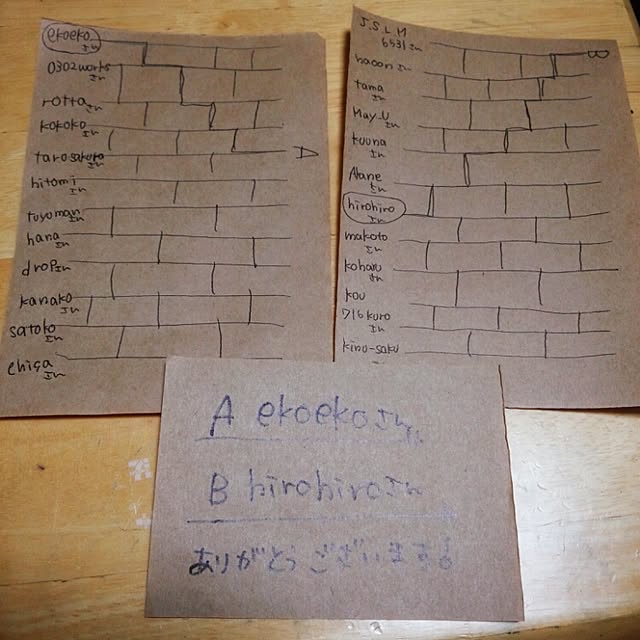 ekoekoさん
0302worksさん
rottaさん
kokokoさん
tarosakutoさん
hitomiさん
tuyomanさん
hanaさん
dropさん
kanakoさん
satokoさん
chisaさん
A
J.S.L.M
6531さん
haoonさん
tamaさん
May.Uさん
kuonaさん
Alaneさん
hirohiroさん
makotoさん
koharuさん
kou
716kuroさん
kino-saku
B
A ekoekoさん
B hirohiroさん
ありがとうございます!